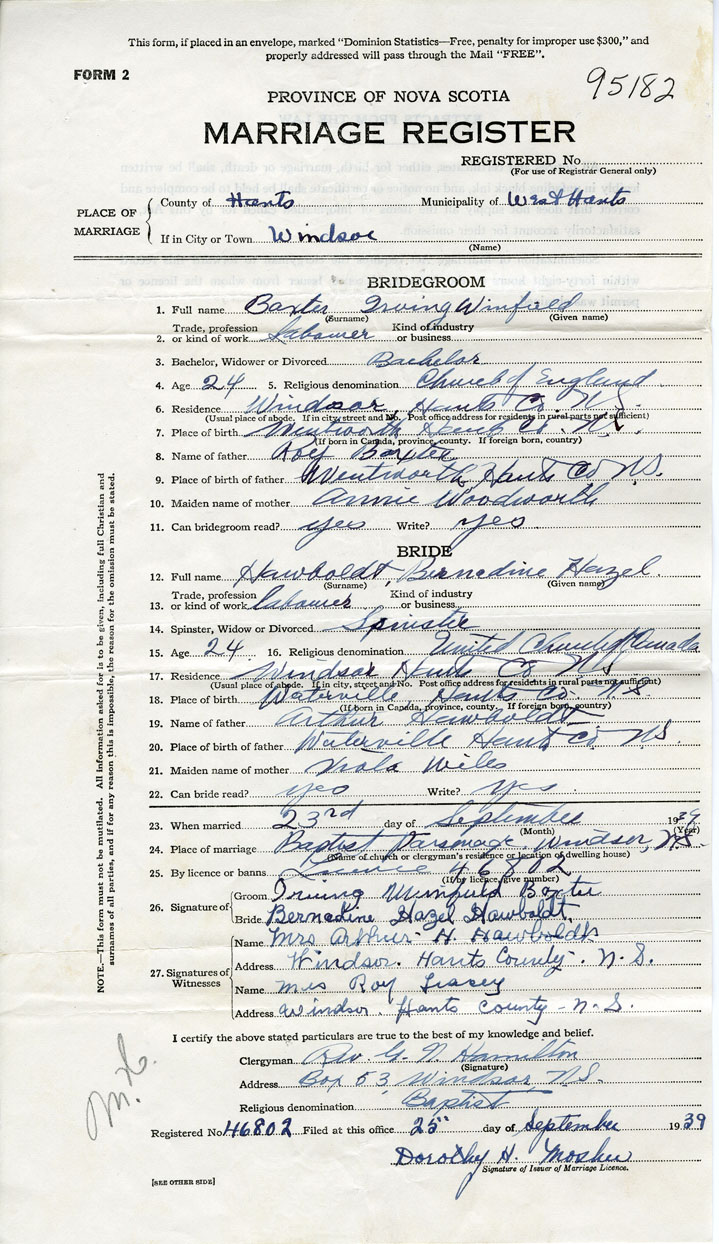 This form, if placed in an envelope, marked “Dominion Statistics—Free, penalty for improper use $300,” and
properly addressed will pass through the Mail “FREE”.
FORM 2
95182
PROVINCE OF NOVA SCOTIA
MARRIAGE REGISTER
REGISTERED No.
(For use of Registrar General only)
PLACE OF MARRIAGE
County of Hants Municipality of West Hants
If in City or Town Windsor
(Name)
BRIDEGROOM
1. Full name Baxter Irving Winfield
(Surname) (Given name)
Trade, profession Kind of industry
2. or kind of work Labourer or business
3. Bachelor, Widower or Divorced Bachelor
4. Age 24 5. Religious denomination Church of England
6. Residence Windsor, Hants Co. N.S.
(Usual place of abode. If in city, street and No. Post office address for residents in rural parts not sufficient)
7. Place of birth Wentworth Hants Co. N.S.
(If born in Canada, province, county. If foreign born, country)
8. Name of father Roy Baxter
9. Place of birth of father Wentworth, Hants Co N.S.
10. Maiden name of mother Annie Woodworth
11. Can bridegroom read? yes Write? yes
BRIDE
12. Full name Hawboldt, Bernadine Hazel
(Surname) (Given name)
Trade, profession Kind of industry
13. or kind of work labourer or business
14. Spinster, Widow or Divorced Spinster
15. Age 24 16. Religious denomination United Church of Canada
17. Residence Windsor Hants Co N S
(Usual place of abode. If in city, street and No. Post office address for residents in rural parts not sufficient)
18. Place of birth Waterville, Hants Co. N S
(If born in Canada, province, county. If foreign born, country)
19. Name of father Arthur Hawboldt
20. Place of birth of father Waterville Hants Co. N.S.
21. Maiden name of mother Wiles
22. Can bride read? yes Write? yes
23. When married 23rd day of September 1939
(Month) (Year)
24. Place of marriage Baptist Parsonage, Windsor, N.S.
(Name of church or clergyman's residence or location of dwelling house)
25. By licence or banns Licence 46802
(If by licence, give number)
26. Signature of
Groom Irving Winfield Baxter
Bride Bernedine Hazel Hawboldt
27. Signatures of Witnesses
Name Mrs Arthur H. Hawboldt
Address Windsor. Hants County. N.S.
Name Mrs Roy
Address Windsor. Hants County - N.S.
I certify the above stated particulars are true to the best of my knowledge and belief.
Clergyman Rev. G. N. Hamilton
(Signature)
Address Box 53, Windsor, N.S.
Religious denomination Baptist
Registered No. 46802 Filed at this office 25" day of September 1939
Dorothy H. Mosher
Signature of Issuer of Marriage Licence.
[SEE OTHER SIDE]
NOTE.—This form must not be mutilated. All information asked for is to be given, including full Christian and
surnames of all parties, and if for any reason this is impossible, the reason for the omission must be stated.